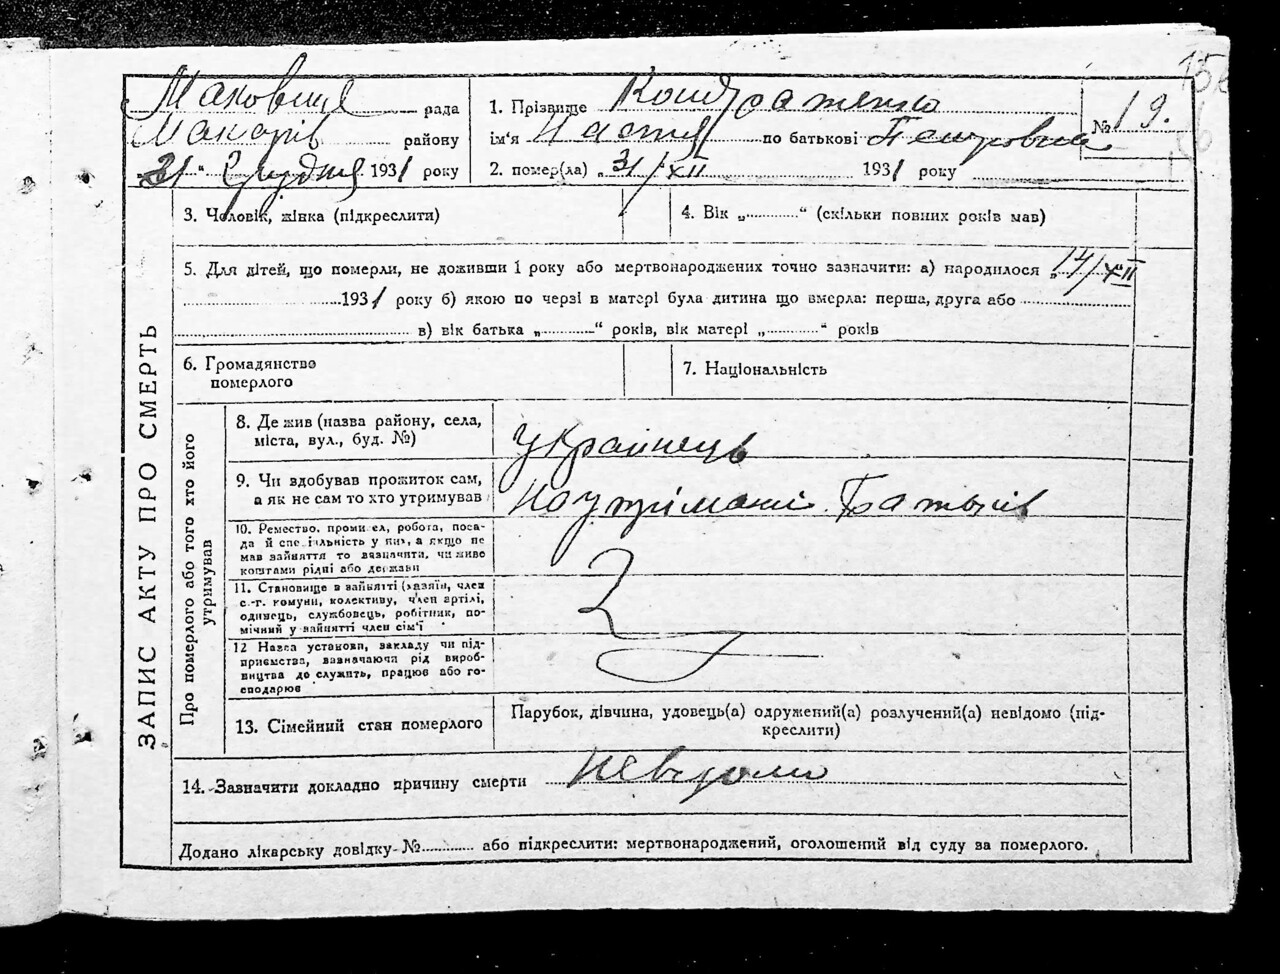 Маковище рада
Макарів району
„31“ Грудня 1931 року
1. Прізвище Кондратенко
ім'я Настя по батькові Петровна
2. помер(ла) „31/XII 1931 року
№ 19.
3. Чоловік, жінка (підкреслити)
4. Вік „............“ (скільки повних років мав)
5. Для дітей, що померли, не доживши 1 року або мертвонароджених точно зазначити: а) народилося „14/XII
1931 року б) якою по черзі в матері була дитина що вмерла: перша, друга або
в) вік батька „............“ років, вік матері „............“ років
6. Громадянство
померлого
7. Національність
ЗАПИС АКТУ ПРО СМЕРТЬ
Про померлого або того хто його
утримував
8. Де жив (назва району, села,
міста, вул., буд. №)
українець
9. Чи здобував прожиток сам,
а як не сам то хто утримував
На утриманні Батьків
10. Ремество, промисел, робота, поса-
да й спеціальність у них, а якщо не
мав зайняття то зазначити, чи живе
коштами рідні або держави
11. Становище в зайнятті (хазяїн, член
с.-г. комуни, колективу, член артілі,
одинець, службовець, робітник, по-
мічний у зайнятті член сім'ї
12 Назва установи, закладу чи під-
приємства, зазначаючи рід вироб-
ництва де служить, працює або го-
сподарює
13. Сімейний стан померлого
Парубок, дівчина, удовець(а) одружений(а) розлучений(а) невідомо (під-
креслити)
14. Зазначити докладно причину смерти невідомо
Додано лікарську довідку №............ або підкреслити: мертвонароджений, оголошений від суду за померлого.